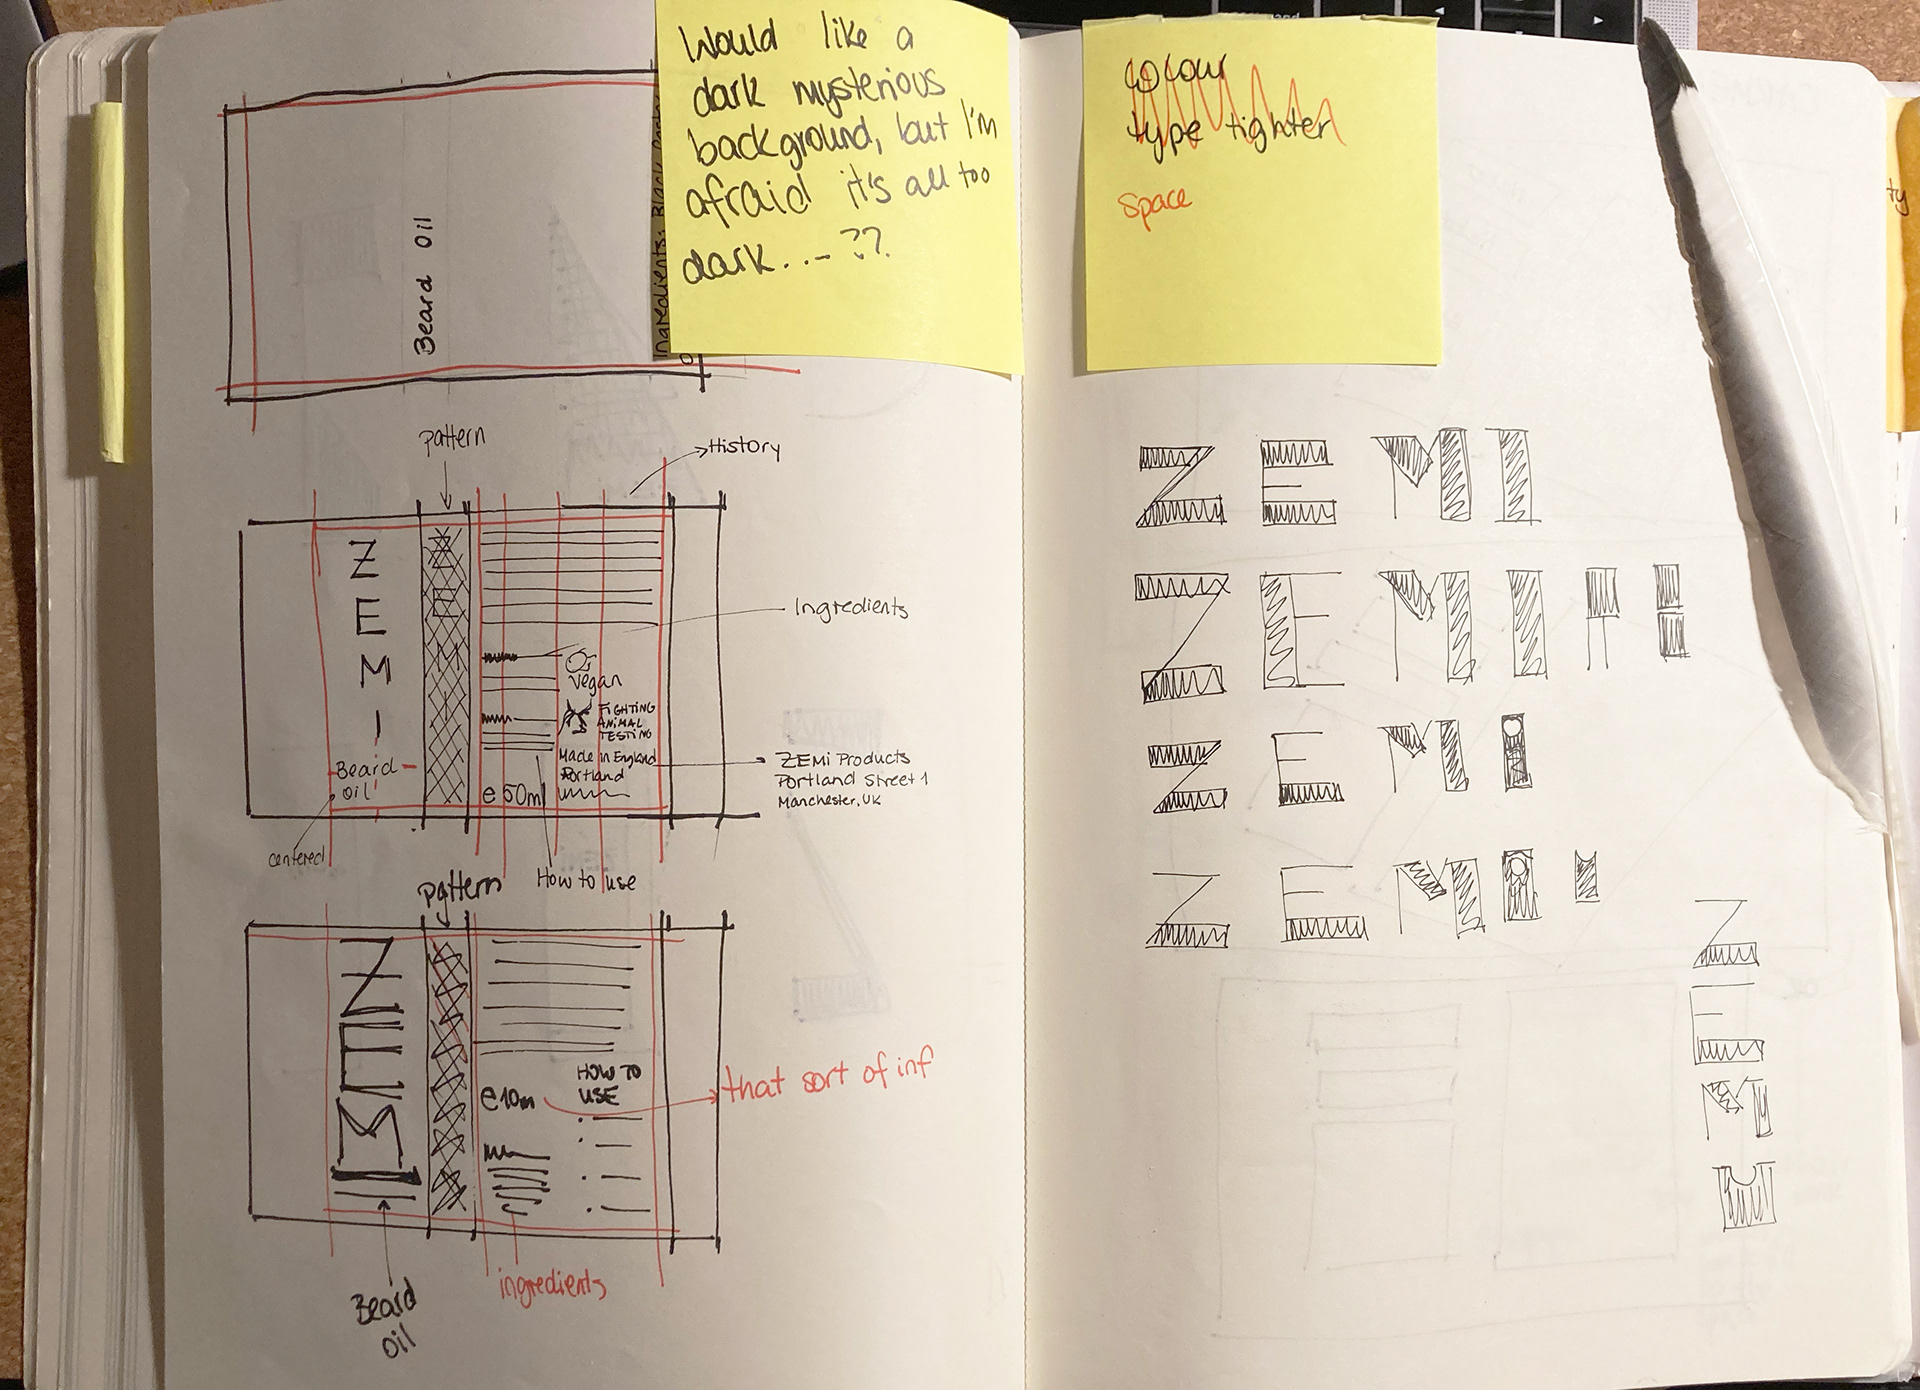 Would like a
dark mysterious
background, but I'm
afraid it's all too
dark... ??
Beard Oil
Ingredients: Black
pattern
History
Z
E
M
I
Beard
oil
centered
Ingredients
Vegan
FIGHTING
ANIMAL
TESTING
Made in England
Portland
e 50ml
How to use
ZEMi Products
Portland Street 1
Manchester, UK
pattern
ZEMI
e 10m
HOW TO
USE
that sort of inf
ingredients
Beard
oil
colour
type tighter
space
ty
ZEMI
ZEMI
ZEMI
ZEMI
Z
E
M